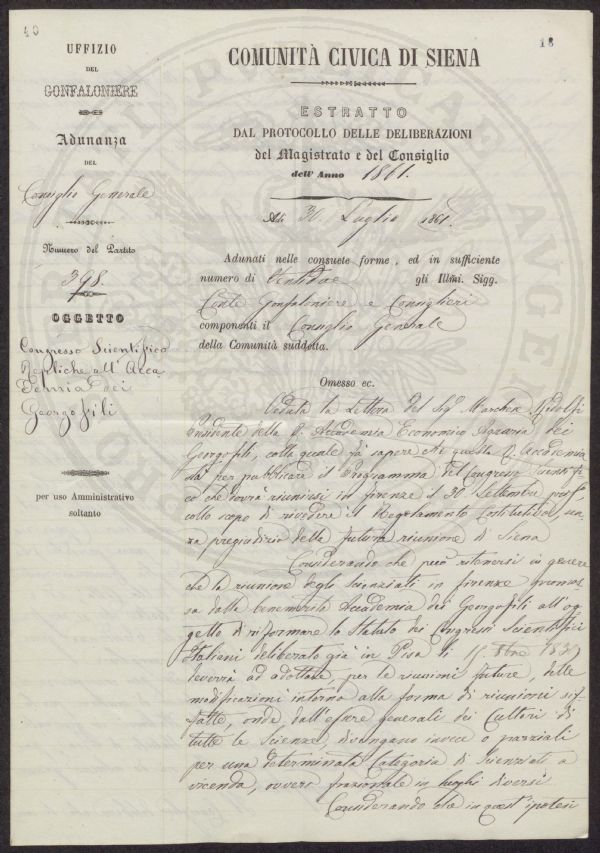 40
18
UFFIZIO
DEL
GONFALONIERE
Adunanza
DEL
Consiglio Generale
Numero del Partito
398.
OGGETTO
Congresso Scientifico
Repliche all' Acca
demia dei
Georgofili
per uso Amministrativo
soltanto
COMUNITÀ CIVICA DI SIENA
ESTRATTO
DAL PROTOCOLLO DELLE DELIBERAZIONI
del Magistrato e del Consiglio
dell' Anno 1861.
Adì 30 Luglio 1861
Adunati nelle consuete forme, ed in sufficiente
numero di Ventidue gli Illmi. Sigg.
Conte Gonfaloniere e Consiglieri
componenti il Consiglio Generale
della Comunità suddetta.
Omesso ec.
Veduta la Lettera del Sig. Marchese Ridolfi
Presidente della R. Accademia Economico Agraria dei
Georgofili, colla quale fa sapere che questa R. Accademia
sta per pubblicare il Programma del Congresso Scientifi
co che dovrà riunirsi in Firenze il 30 Settembre
collo scopo di rivedere il Regolamento Costitutivo, sen
za pregiudizio della futura riunione di Siena
Considerando che può ritenersi in genere
che la riunione degli scienziati in Firenze promos
sa dalla benemerita Accademia dei Georgofili all'og
getto di riformare lo Statuto dei Congressi Scientifici
Italiani deliberato già in Pisa li 15 8bre 1839
devenrà ad adottare, per le riunioni future, delle
modificazioni intorno alla forma di riunioni sif
fatte, onde, dall'essere generali dei Cultori di
tutte le Scienze divengano invece o parziali
per una determinata Categoria di Scienziati a
vicenda, ovvero frazionale in luoghi diversi
Considerando che in quest'ipotesi